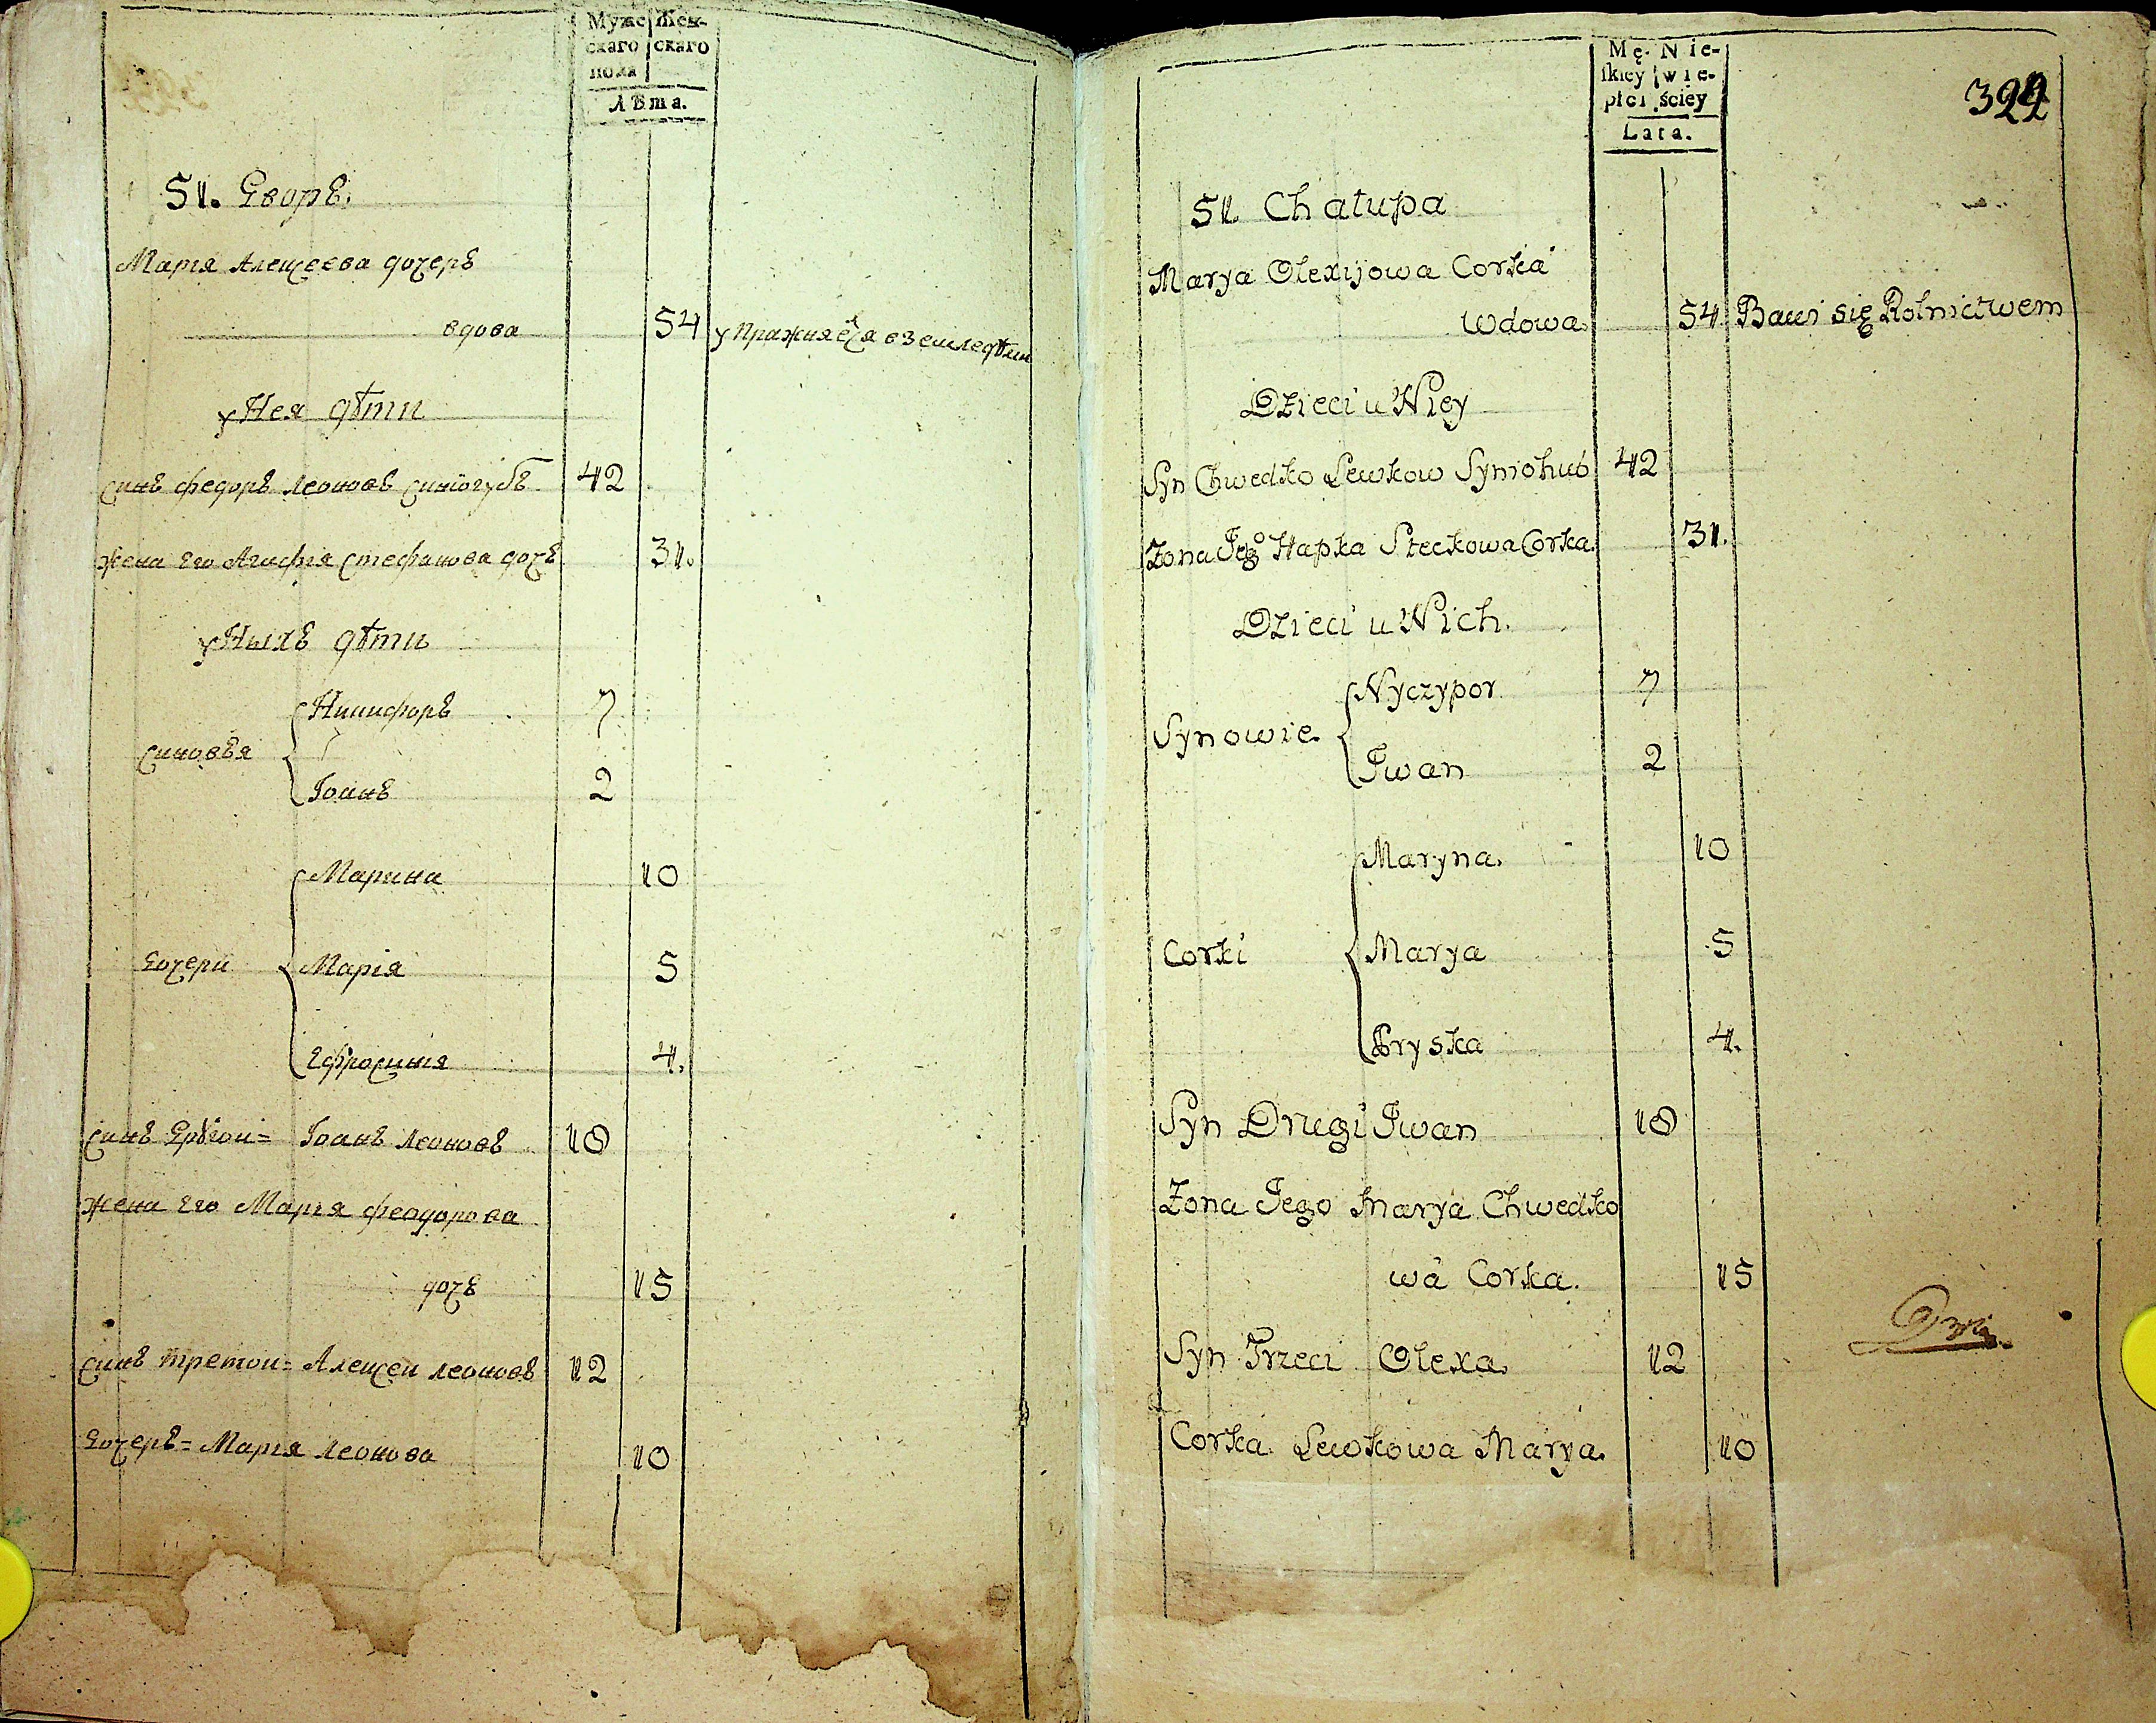 Муже- Жен-
скаго скаго
пола
Лѣта.
51. Дворъ.
Марія Алеѯеева дочеръ
вдова 54 упражняеⷭ҇я в земледѣлїи
у Нея дѣти
синъ федоръ Леоновъ синюгубъ 42
жена Его Агафія стефанова дочъ 31.
у Ныхъ дѣти
синовъя
Никифоръ 7
Іоанъ 2
Дочери
Марина 10
Марія 5
Ефросинія 4.
синъ Другои = Іоанъ Леоновъ 18
жена Его Марія феодорова
дочъ 15
синъ третои = Алеѯеи леоновъ 12
Дочеръ = Марія леонова 10
Mę- Nie-
ſkiey wie-
płci ściey
Lata.
51. Chałupa
Marya Olexijowa Corka
Wdowa. 54. Bawi się Rolnictwem
Dzieci u Niey
Syn Chwedko Lewkow Syniohub 42
Zona Jegº Hapka Steckowa Corka. 31.
Dzieci u Nich.
Synowie.
Nyczypor 7
Jwan 2
Corki
Maryna. 10
Marya 5
Pryska 4.
Syn Drugi Jwan 18
Zona Jego Marya Chwedko
wa Corka. 15
Syn Trzeci Olexa. 12
Corka Lewkowa Marya. 10